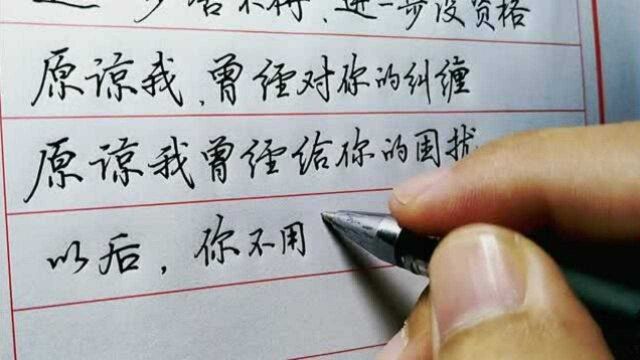 退一步舍不得，进一步没资格
原谅我，曾经对你的纠缠
原谅我曾经给你的困扰
以后，你不用